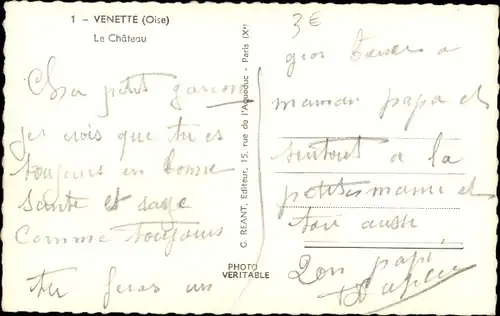 1 - VENETTE (Oise)
Le Château
petit garçon
je crois que tu es
toujours en bonne
santé et sage
comme toujours
tu feras un
C. REANT, Editeur, 15, rue de l'Aqueduc - Paris (Xe)
PHOTO
VERITABLE
3€
gros baiser a
maman papa et
surtout a la
petite mamie et
toi aussi
Ton papi